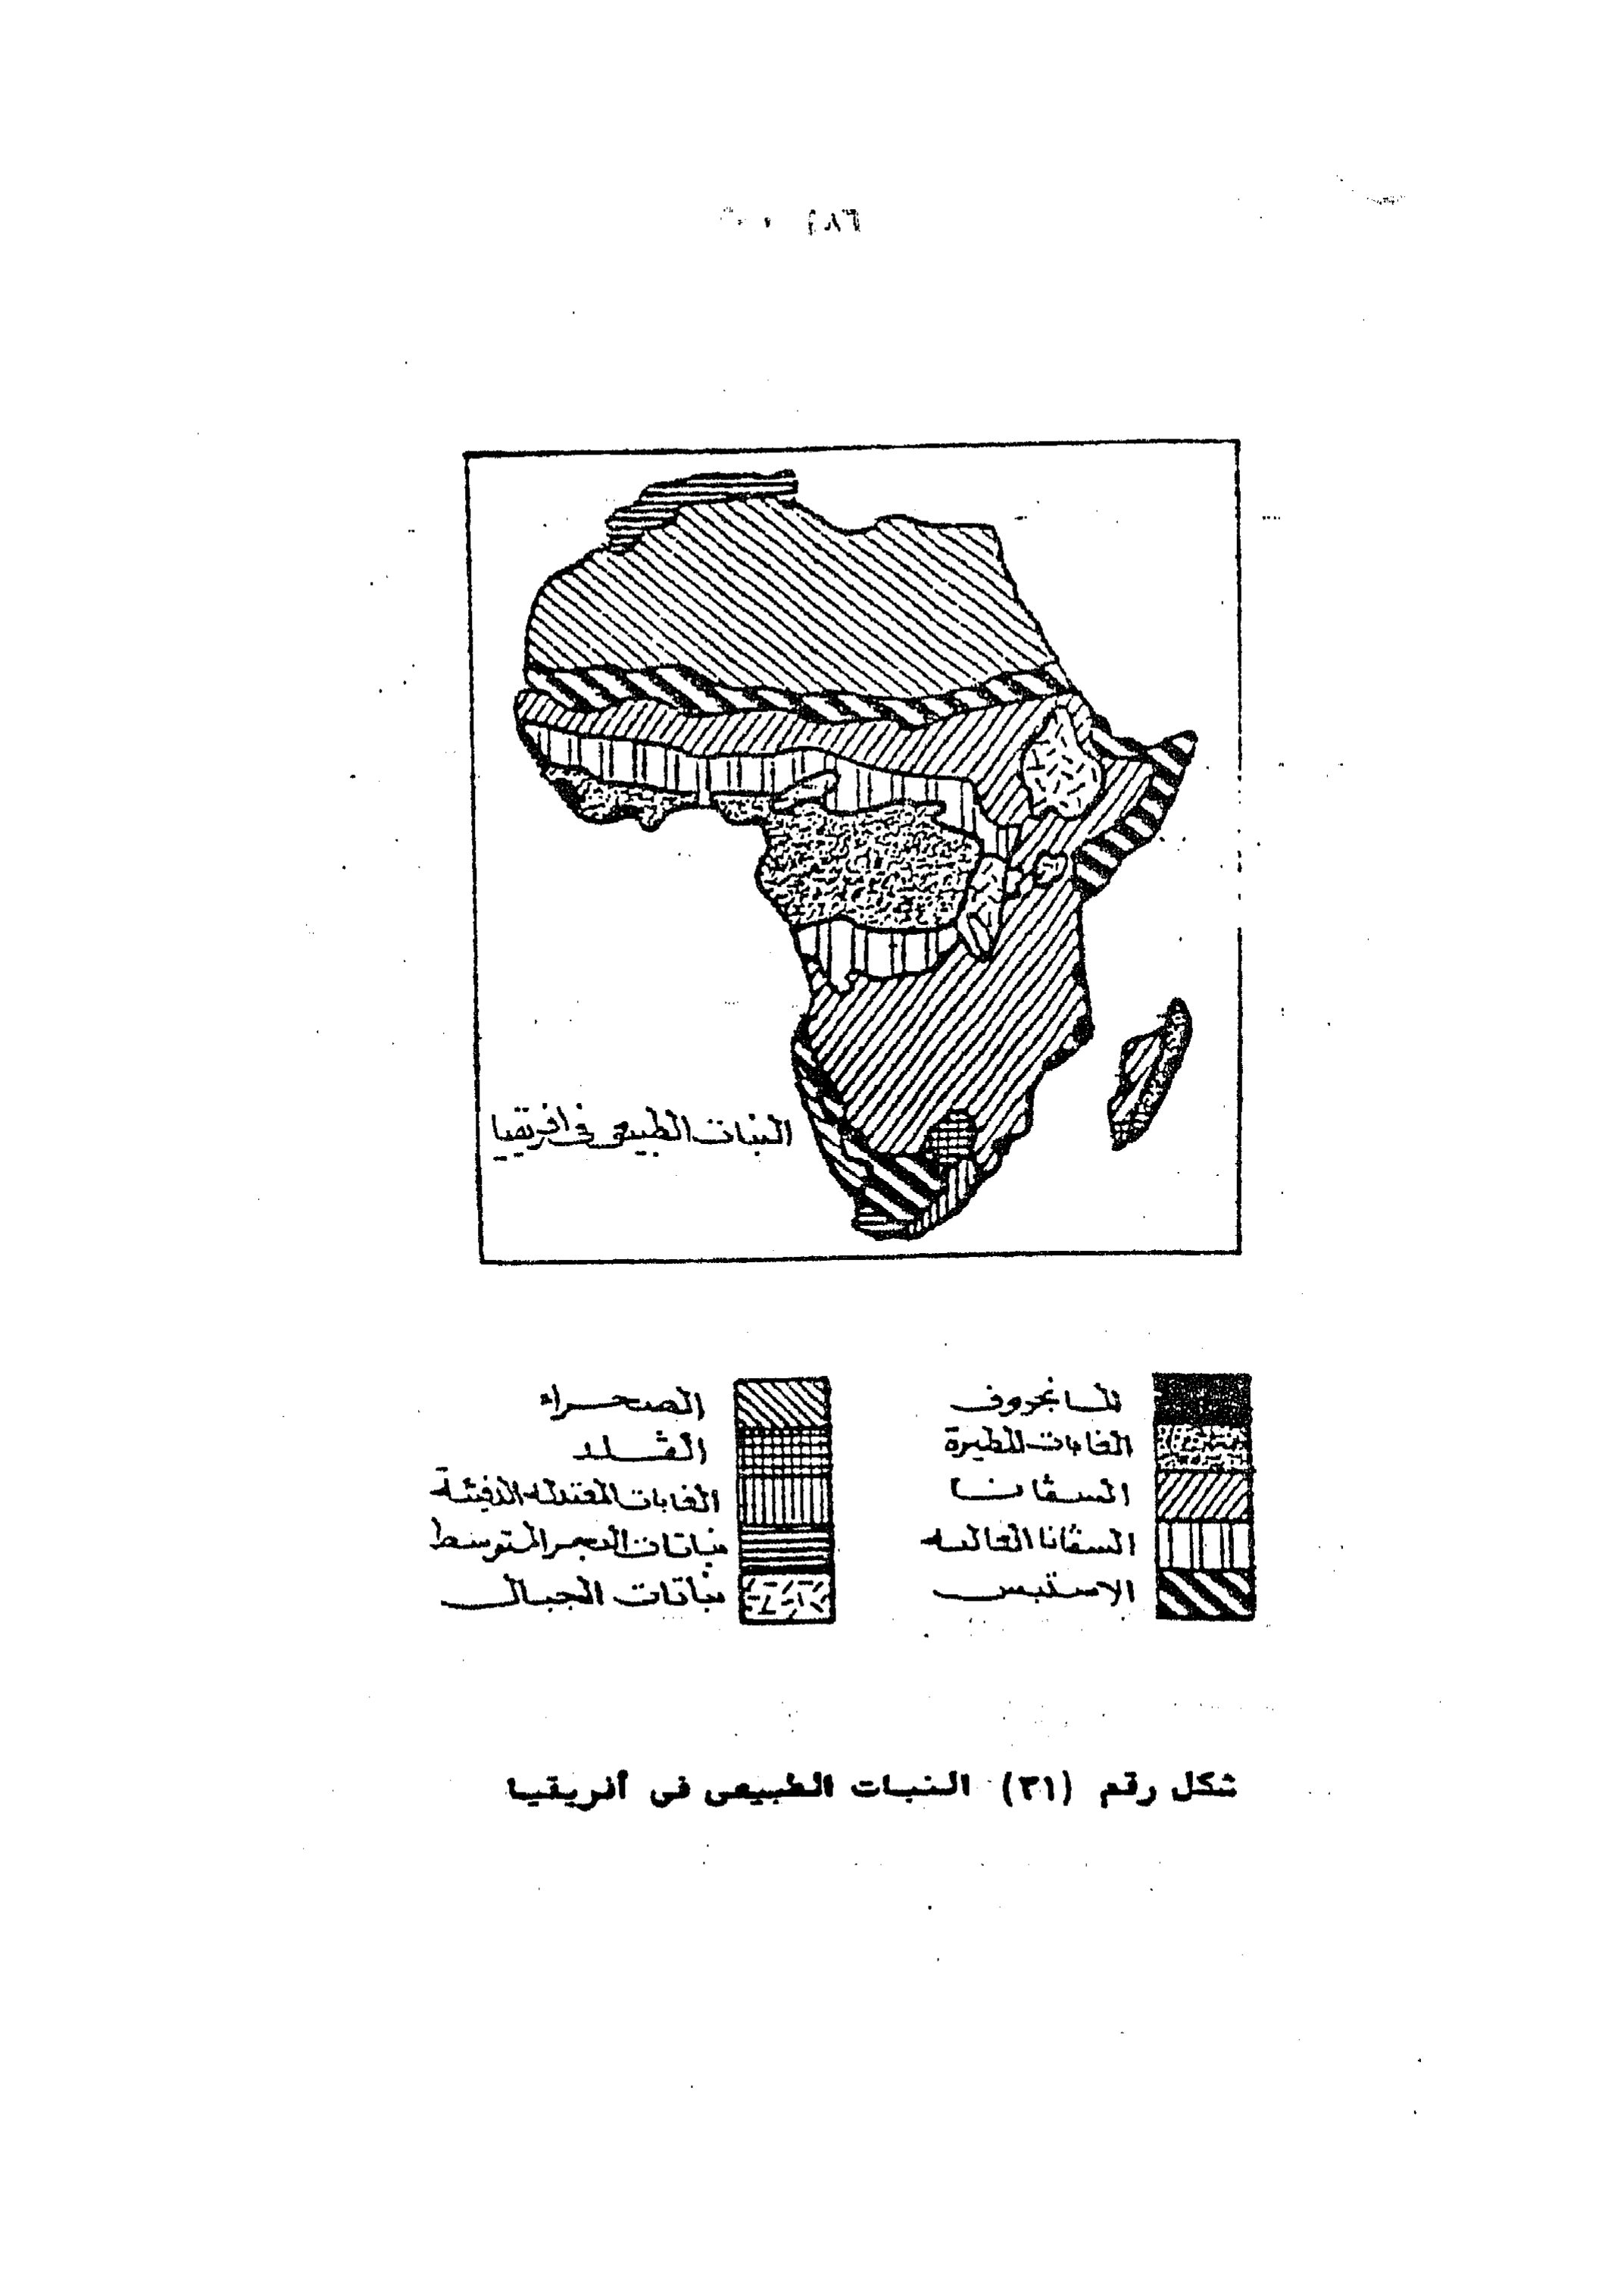 النبات الطبيعى فى افريقيا
المانجروف
الغابات المطيرة
السڤانا
السڤانا العالية
الاستبس
الصحراء
الڤلد
الغابات المعتدلة الدفيئة
نباتات البحر المتوسط
نباتات الجبال
شكل رقم (٣١) النبات الطبيعى فى أفريقيا